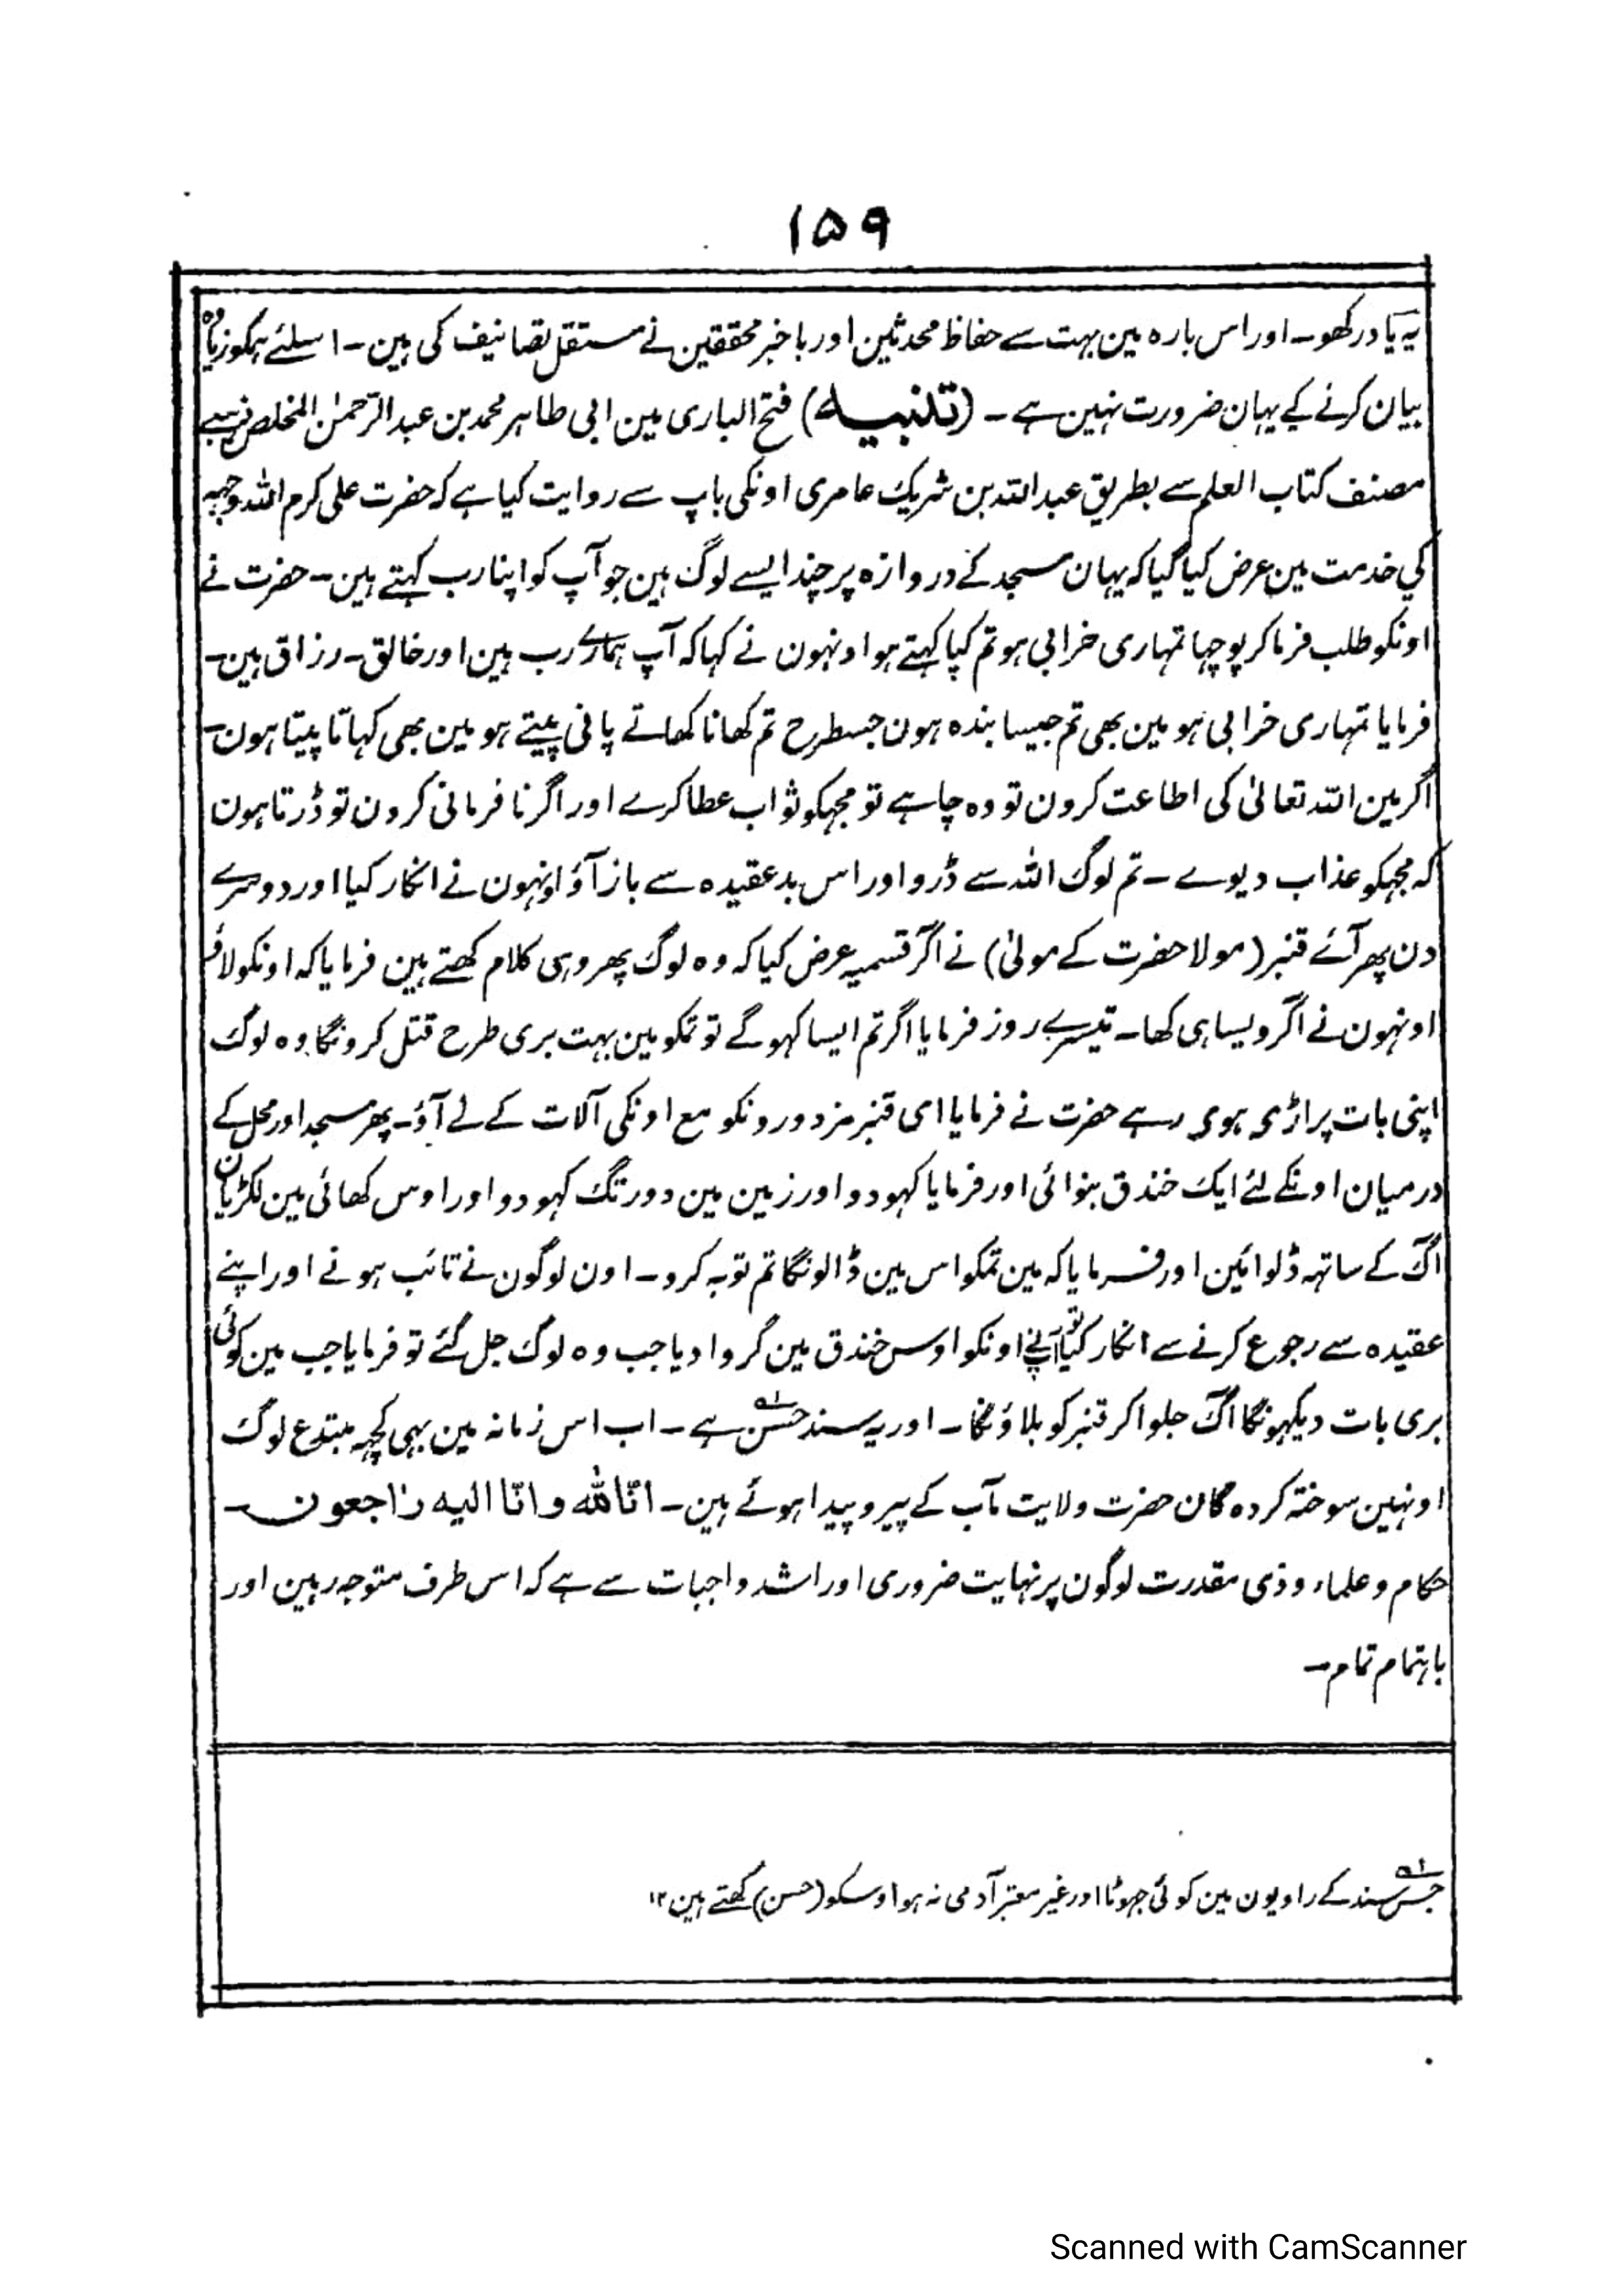 ۱۵۹
یہ یاد رکھو۔ اور اس بارہ مین بہت سے حفاظ محدثین اور باخبر محققین نے مستقل تصانیف کی ہین۔ اسلئے ہمکو زیادہ
بیان کرنے کے یہان ضرورت نہین ہے۔ (تنبیہ) فتح الباری مین ابی طاہر محمد بن عبد الرحمٰن المخلص نے
مصنف کتاب العلم سے بطریق عبد اللہ بن شریک عامری اونکی باپ سے روایت کیا ہے کہ حضرت علی کرم اللہ وجہہ
کی خدمت مین عرض کیا گیا کہ یہان مسجد کے دروازہ پر چند ایسے لوگ ہین جو آپ کو اپنا رب کہتے ہین۔ حضرت نے
اونکو طلب فرما کر پوچہا تمہاری خرابی ہو تم کیا کہتے ہو اونہون نے کہا کہ آپ ہمارے رب ہین اور خالق۔ رزاق ہین۔
فرمایا تمہاری خرابی ہو مین بھی تم جیسا بندہ ہون جسطرح تم کھانا کھاتے پانی پیتے ہو مین بھی کہاتا پیتا ہون۔
اگر مین اللہ تعالیٰ کی اطاعت کرون تو وہ چاہے تو مجہکو ثواب عطا کرے اور اگر نافرمانی کرون تو ڈرتا ہون
کہ مجہکو عذاب دیوے۔ تم لوگ اللہ سے ڈرو اور اس بد عقیدہ سے باز آؤ اونہون نے انکار کیا اور دوسرے
دن پھر آئے قنبر (مولا حضرت کے مولیٰ) نے آکر قسمیہ عرض کیا کہ وہ لوگ پھر وہی کلام کھتے ہین فرمایا کہ اونکو لاؤ
اونہون نے آکر ویسا ہی کھا۔ تیسرے روز فرمایا اگر تم ایسا کہو گے تو تمکو مین بہت بری طرح قتل کرونگا وہ لوگ
اپنی بات پر اڑی ہوی رہے حضرت نے فرمایا ای قنبر مزدورونکو مع اونکی آلات کے لے آؤ۔ پھر مسجد اور محل کے
درمیان اونکے لئے ایک خندق بنوائی اور فرمایا کہودو اور زمین مین دور تک کہودو اور اوس کھائی مین لکڑیان
آگ کے ساتہہ ڈلوائین اور فرمایا کہ مین تمکو اس مین ڈالونگا تم توبہ کرو۔ اون لوگون نے تائب ہونے اور اپنے
عقیدہ سے رجوع کرنے سے انکار کیا تو آپنے اونکو اوس خندق مین گروا دیا جب وہ لوگ جل گئے تو فرمایا جب مین کوئی
بری بات دیکہونگا آگ جلوا کر قنبر کو بلاؤنگا۔ اور یہ سند حسن لہ ہے۔ اب اس زمانہ مین بہی کچہہ مبتدع لوگ
اونہین سوختہ کردہ گان حضرت ولایت مآب کے پیرو پیدا ہوئے ہین۔ انّا للہ و انّا الیہ راجعون۔
حکام و علماء و ذی مقدرت لوگون پر نہایت ضروری اور اشد واجبات سے ہے کہ اس طرف متوجہ رہین اور
باہتمام تمام۔
لہ جس سند کے راویون مین کوئی جہوٹا اور غیر معتبر آدمی نہ ہو اوسکو (حسن) کھتے ہین ۱۲
Scanned with CamScanner